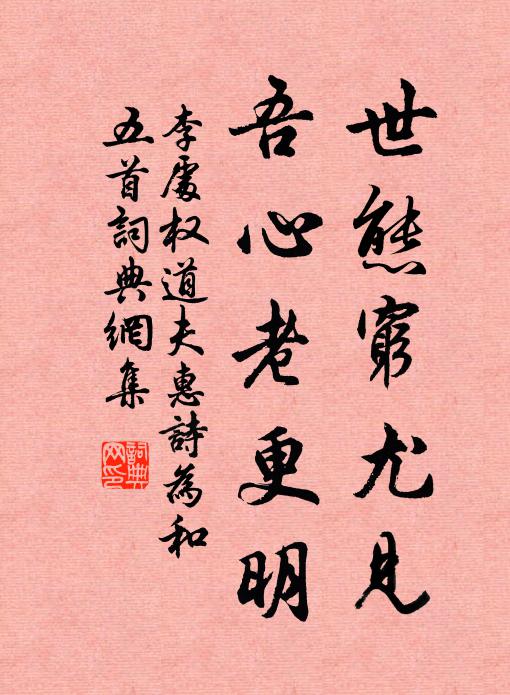 世態窮尤見
吾心老更明
李處权道夫惠詩為和
五首詞典網集
詞典网印